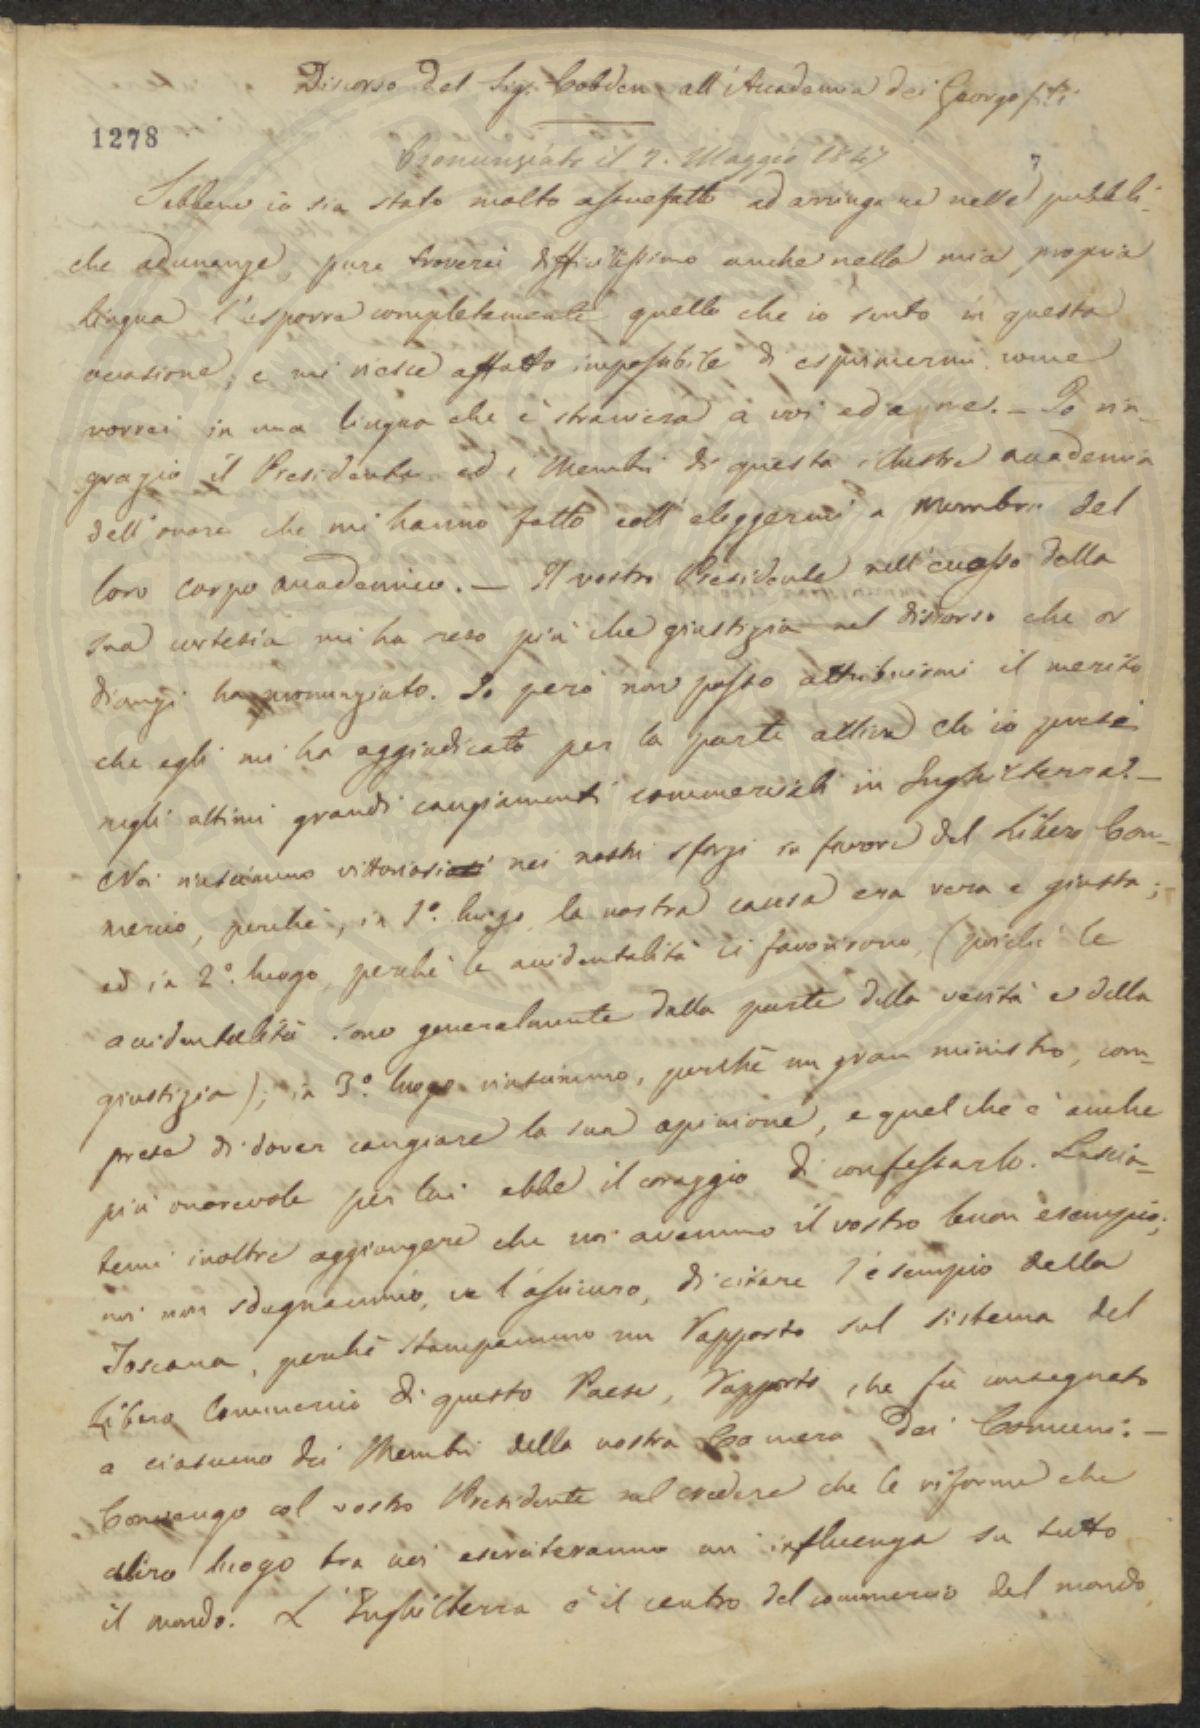 Discorso del Sig. Cobden all'Accademia dei Georgofili
1278
Pronunziato il 2. Maggio 1847
7
Sebbene io sia stato molto assuefatto ad arringare nelle pubbli-
che adunanze, pure troverei difficilissimo anche nella mia propria
lingua l'esporre completamente quello che io sento in questa
occasione, e mi riesce affatto impossibile di esprimermi come
vorrei in una lingua che è straniera a voi ed a me. – Io rin-
grazio il Presidente ed i Membri di questa illustre accademia
dell'onore che mi hanno fatto coll'eleggermi a Membro del
loro corpo accademico. – Il vostro Presidente nell'eccesso della
sua cortesia mi ha reso più che giustizia nel discorso che or
dianzi ha pronunziato. Io però non posso attribuirmi il merito
che egli mi ha aggiudicato per la parte attiva ch'io presi
negli ultimi grandi cangiamenti commerciali in Inghilterra. –
Noi riuscimmo vittoriosi nei nostri sforzi in favore del Libero Com-
mercio, perchè, in 1º. luogo, la nostra causa era vera e giusta;
ed in 2º. luogo, perchè le accidentalità ci favorirono, (poichè le
accidentalità sono generalmente dalla parte della verità e della
giustizia); in 3º. luogo riuscimmo, perchè un gran ministro, com-
prese di dover cangiare la sua opinione, e quel che è anche
più onorevole per lui ebbe il coraggio di confessarlo. Lascia-
temi inoltre aggiungere che noi avemmo il vostro buon esempio;
noi non sdegnammo, ve l'assicuro, di citare l'esempio della
Toscana, perchè stampammo un Rapporto sul sistema del
Libero Commercio di questo Paese, Rapporto che fu consegnato
a ciascuno dei Membri della nostra Camera dei Comuni. –
Convengo col vostro Presidente nel credere che le riforme che
ebbero luogo tra noi eserciteranno un influenza su tutto
il mondo. L'Inghilterra è il centro del commercio del mondo